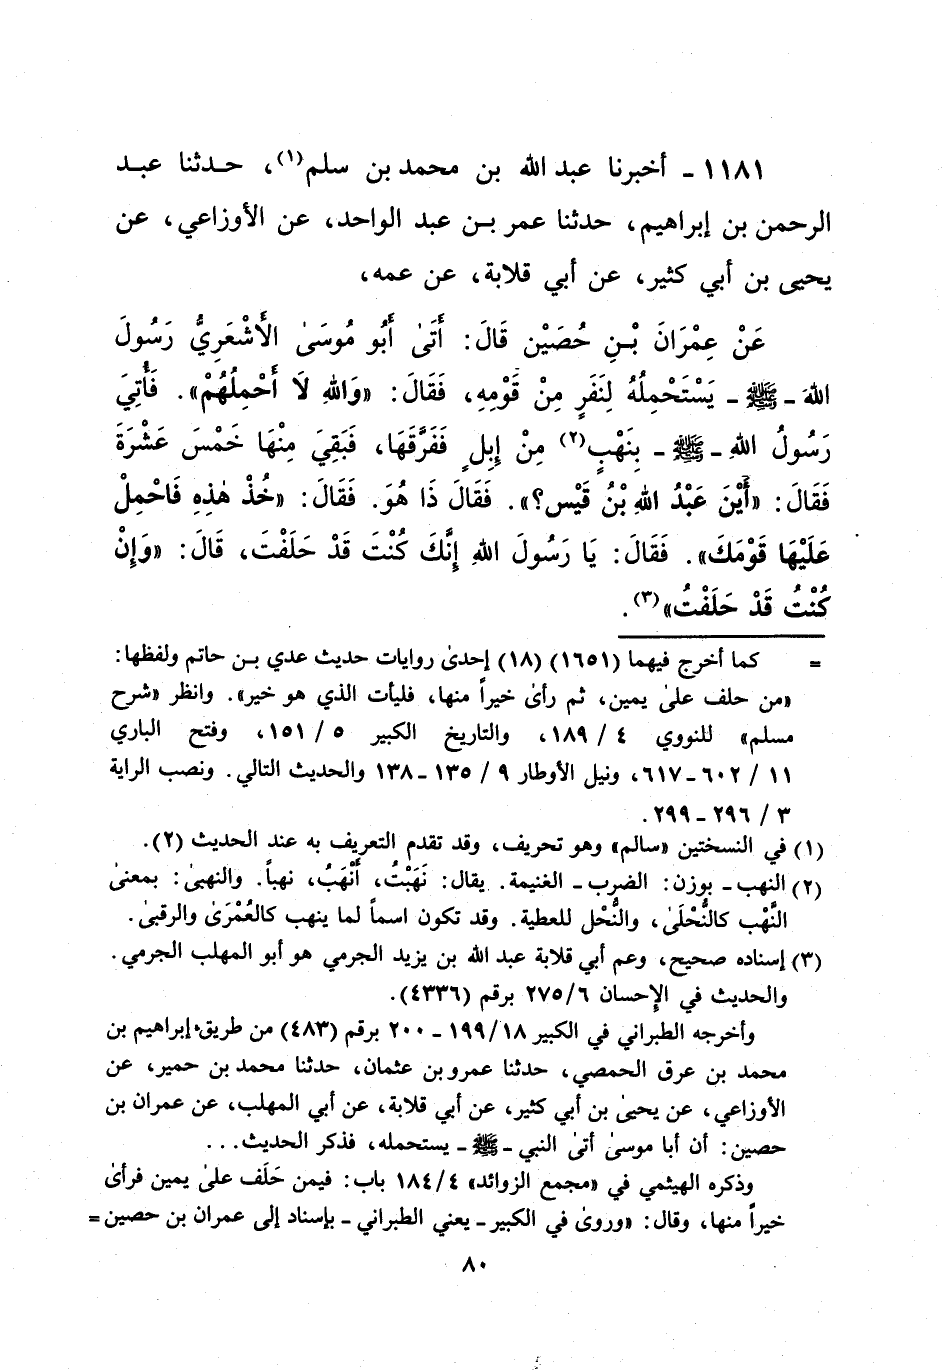 ١١٨١ - أخبرنا عبد الله بن محمد بن سلم(١)، حدثنا عبد
الرحمن بن إبراهيم، حدثنا عمر بن عبد الواحد، عن الأوزاعي، عن
يحيى بن أبي كثير، عن أبي قلابة، عن عمه،
عَنْ عِمْرَانَ بْنِ حُصَيْن قَالَ: أَتَىٰ أَبُو مُوسَىٰ الأَشْعَرِيُّ رَسُولَ
اللهَ - ﷺ - يَسْتَحْمِلُهُ لِنَفَرٍ مِنْ قَوْمِهِ، فَقَالَ: «وَاللهِ لَا أَحْمِلُهُمْ». فَأُتِيَ
رَسُولُ اللهِ - ﷺ - بِنَهْبٍ(٢) مِنْ إِبِلٍ فَفَرَّقَهَا، فَبَقِيَ مِنْهَا خَمْسَ عَشْرَةَ
فَقَالَ: «أَيْنَ عَبْدُ اللهِ بْنُ قَيْس؟». فَقَالَ ذَا هُوَ. فَقَالَ: «خُذْ هٰذِهِ فَاحْمِلْ
عَلَيْهَا قَوْمَكَ». فَقَالَ: يَا رَسُولَ اللهِ إِنَّكَ كُنْتَ قَدْ حَلَفْتَ، قَالَ: «وَإِنْ
كُنْتُ قَدْ حَلَفْتُ»(٣).
= كما أخرج فيهما (١٦٥١) (١٨) إحدىٰ روايات حديث عدي بن حاتم ولفظها:
«من حلف علىٰ يمين، ثم رأىٰ خيراً منها، فليأت الذي هو خير». وانظر «شرح
مسلم» للنووي ٤ / ١٨٩، والتاريخ الكبير ٥ / ١٥١، وفتح الباري
١١ / ٦٠٢ - ٦١٧، ونيل الأوطار ٩ / ١٣٥ - ١٣٨ والحديث التالي. ونصب الراية
٣ / ٢٩٦ - ٢٩٩.
(١) في النسختين «سالم» وهو تحريف، وقد تقدم التعريف به عند الحديث (٢).
(٢) النهب - بوزن: الضرب - الغنيمة. يقال: نَهَبْتُ، أَنْهَبُ، نهباً. والنهبىٰ: بمعنىٰ
النَّهْب كالنُّحْلَىٰ، والنُّحْل للعطية. وقد تكون اسماً لما ينهب كالعُمْرَىٰ والرقبىٰ.
(٣) إسناده صحيح، وعم أبي قلابة عبد الله بن يزيد الجرمي هو أبو المهلب الجرمي.
والحديث في الإحسان ٦/ ٢٧٥ برقم (٤٣٣٦).
وأخرجه الطبراني في الكبير ١٨/ ١٩٩ - ٢٠٠ برقم (٤٨٣) من طريق إبراهيم بن
محمد بن عرق الحمصي، حدثنا عمرو بن عثمان، حدثنا محمد بن حمير، عن
الأوزاعي، عن يحيىٰ بن أبي كثير، عن أبي قلابة، عن أبي المهلب، عن عمران بن
حصين: أن أبا موسىٰ أتىٰ النبي - ﷺ - يستحمله، فذكر الحديث...
وذكره الهيثمي في «مجمع الزوائد» ٤/ ١٨٤ باب: فيمن حَلَف علىٰ يمين فرأىٰ
خيراً منها، وقال: «وروىٰ في الكبير - يعني الطبراني - بإسناد إلى عمران بن حصين =
٨٠